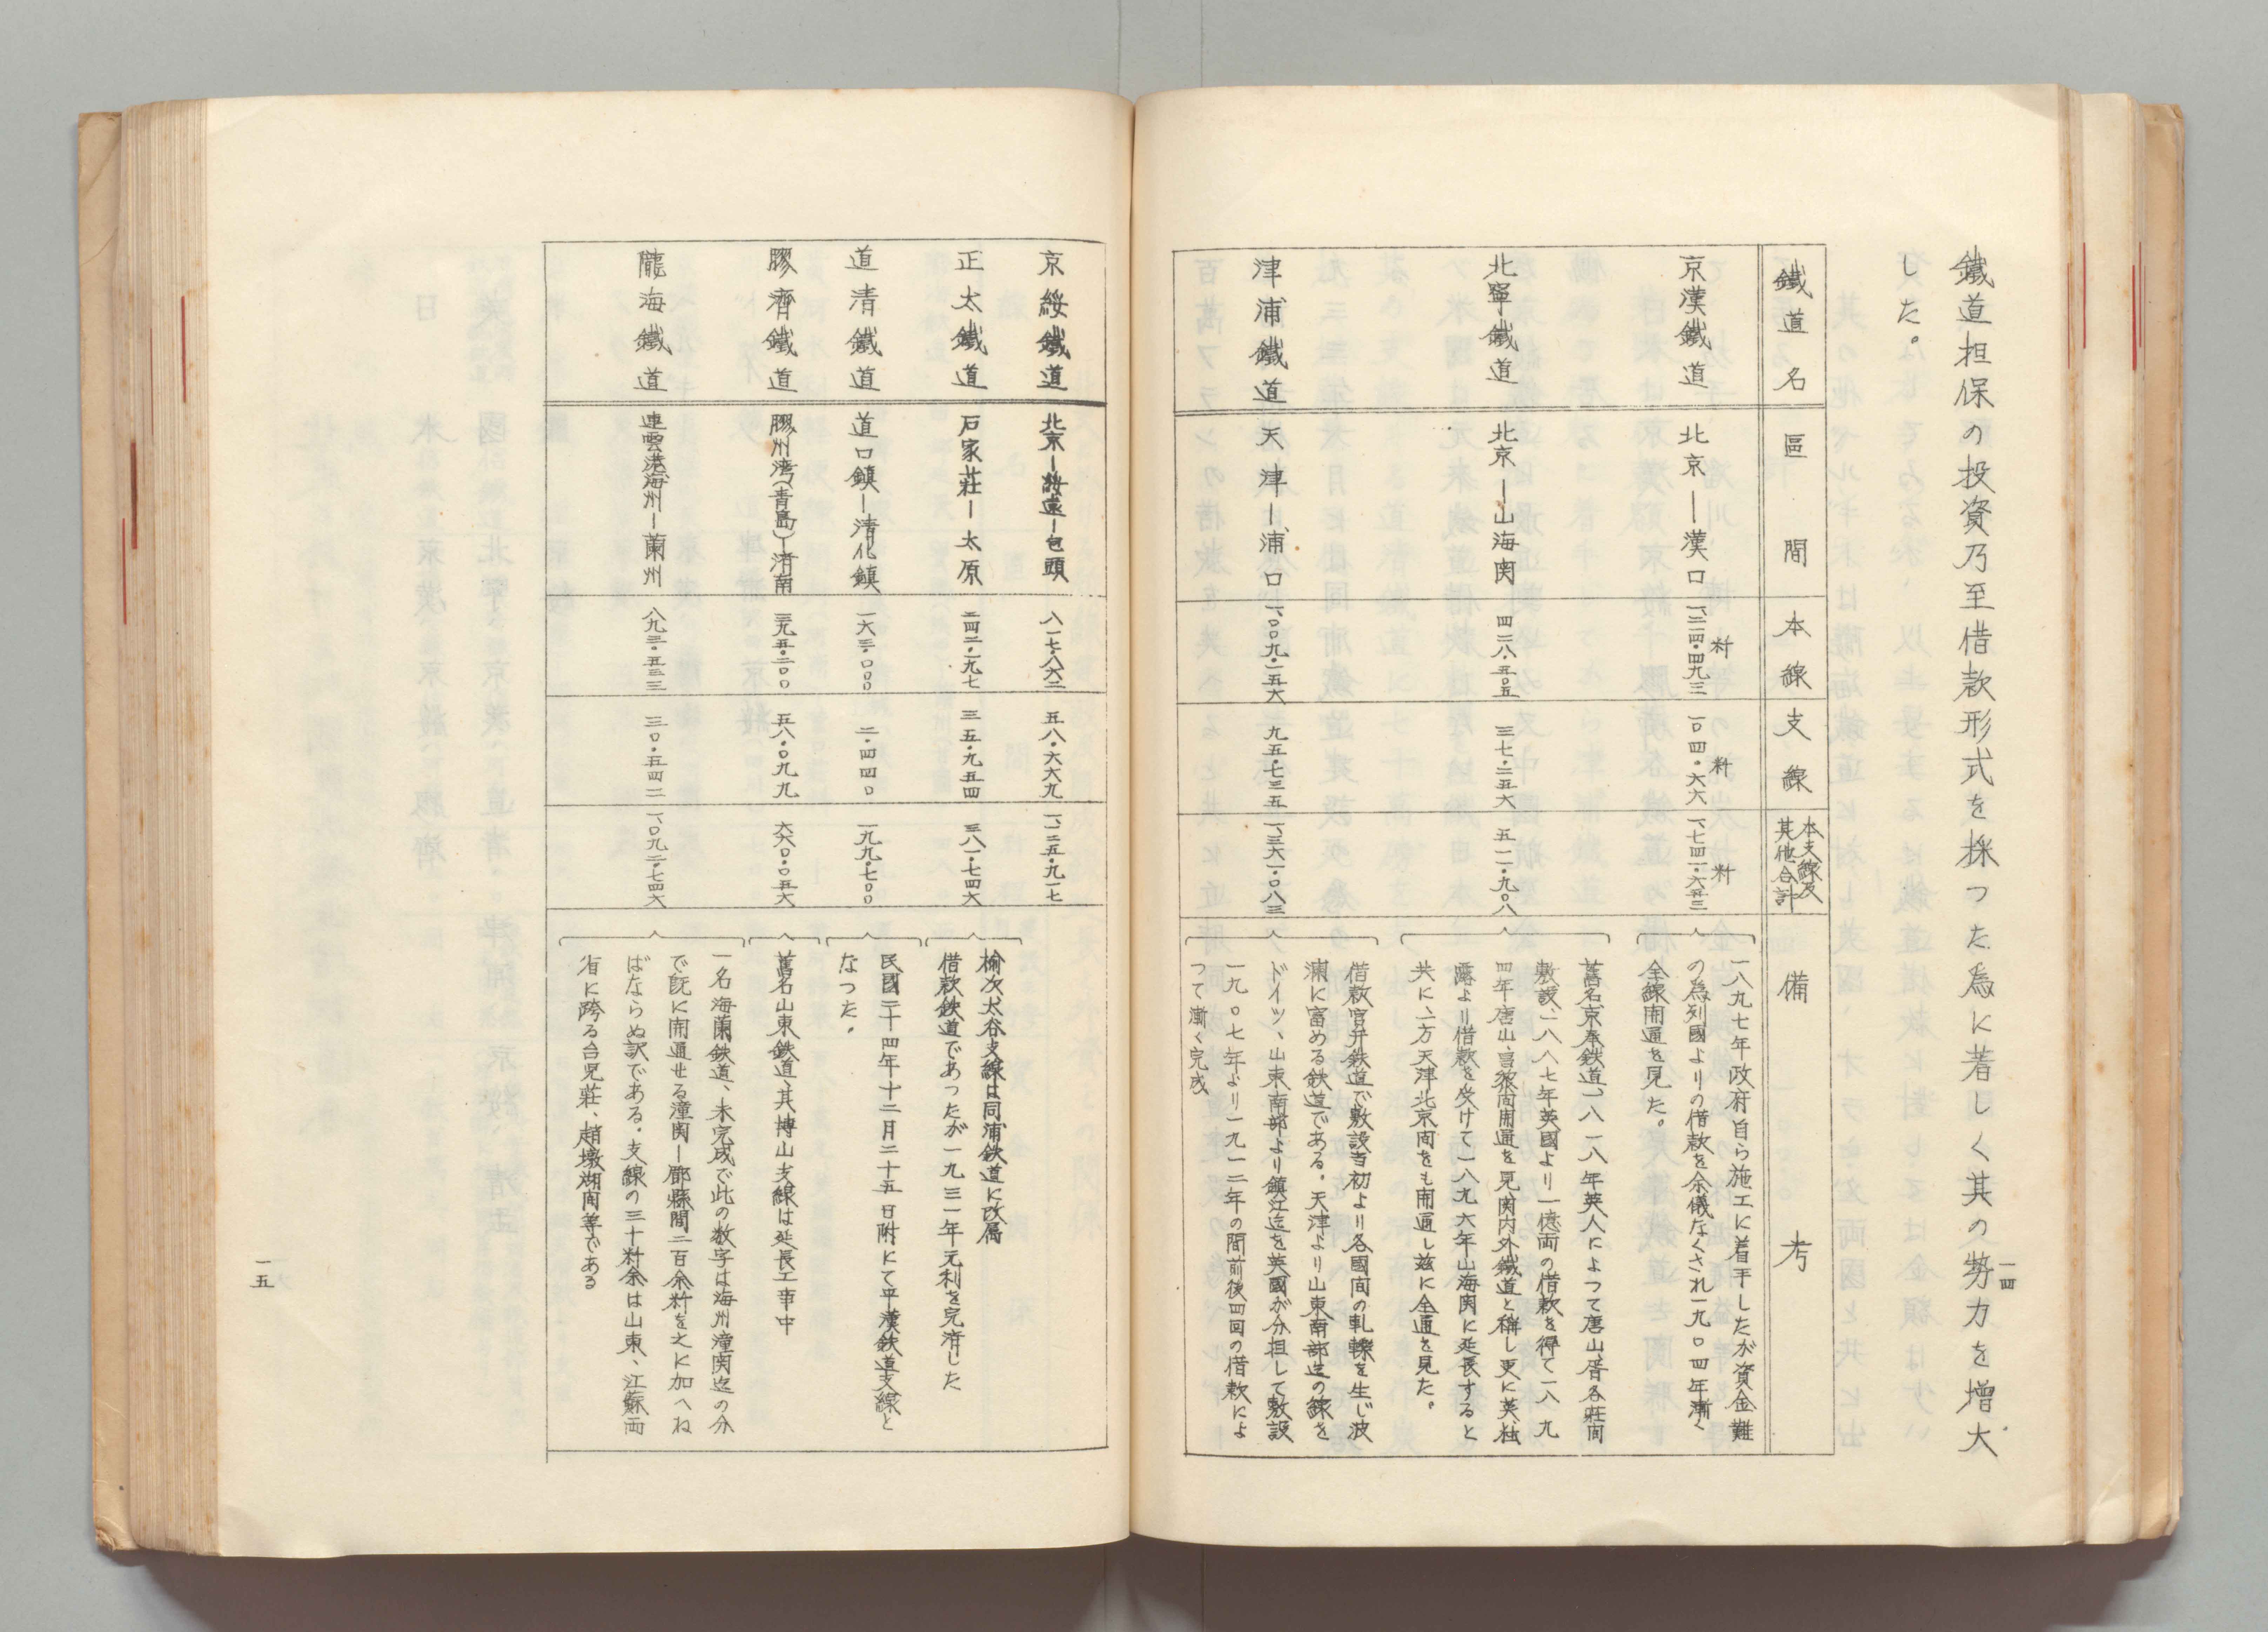 一四
鐵道担保の投資乃至借款形式を採つた為に著しく其の勢力を増大
した。
鐵道名
區間
本線
支線
本支線及
其他合計
備考
京漢鐵道
北京―漢口
粁
粁
一〇四・六六
粁
一、七四一・六五三
一八九七年政府自ら施工に着干したが資金難
の為列國よりの借款を余儀なくされ一九〇四年漸く
全線開通を見た。
北寧鐵道
北京―山海関
四二八・五〇五
三七・二五六
五一一・九〇八
舊名京奉鉄道、一八一八年英人によつて唐山、胥各荘間
敷設、一八八七年英國より一億両の借款を得て一八九
四年唐山、間開通を見、関内外鐵道と稱し更に英、独
露より借款を受けて一八九六年山海関に延長すると
共に、一方天津北京間をも開通し茲に全通を見た。
津浦鐵道
天津―浦口
一、〇〇九・一五六
九五・七三五
一、三六一・〇八三
借款官弁鉄道で敷設当初より各國間の軋轢を生じ波
瀾に富める鉄道である。天津より山東南部迄の線を
ドイツ、山東南部より鎮江迄を英國が分担して敷設
一九〇七年より一九一二年の間前後四回の借款によ
つて漸く完成
京綏鐵道
北京―綏遠―包頭
八一七・八六二
五八・六六九
一、一二五・九一七
正太鐵道
石家荘―太原
二四二・一九七
三五・九五四
三八一・七四六
榆次、太谷支線は同浦鉄道に改屬
借款鉄道であつたが一九三一年元利を完済した
道清鐵道
道口鎮―清化鎮
一六三・〇〇〇
二・四四〇
一九九・七〇〇
民國二十四年十二月二十五日附にて平漢鉄道支線と
なつた。
膠濟鐵道
膠州湾(青島)―済南
三九五・二〇〇
五八・〇九九
六六〇・〇五六
舊名山東鉄道、其博山支線は延長工事中
隴海鐵道
連雲港海州―蘭州
八九三・五三三
三〇・五四二
一、〇九二・七四六
一名海蘭鉄道、未完成で此の数字は海州潼関迄の分
で既に開通せる潼関―郿縣間二百余粁を之に加へね
ばならぬ訳である。支線の三十粁余は山東、江蘇両
省に跨る台児荘、趙墩湖間等である
一五